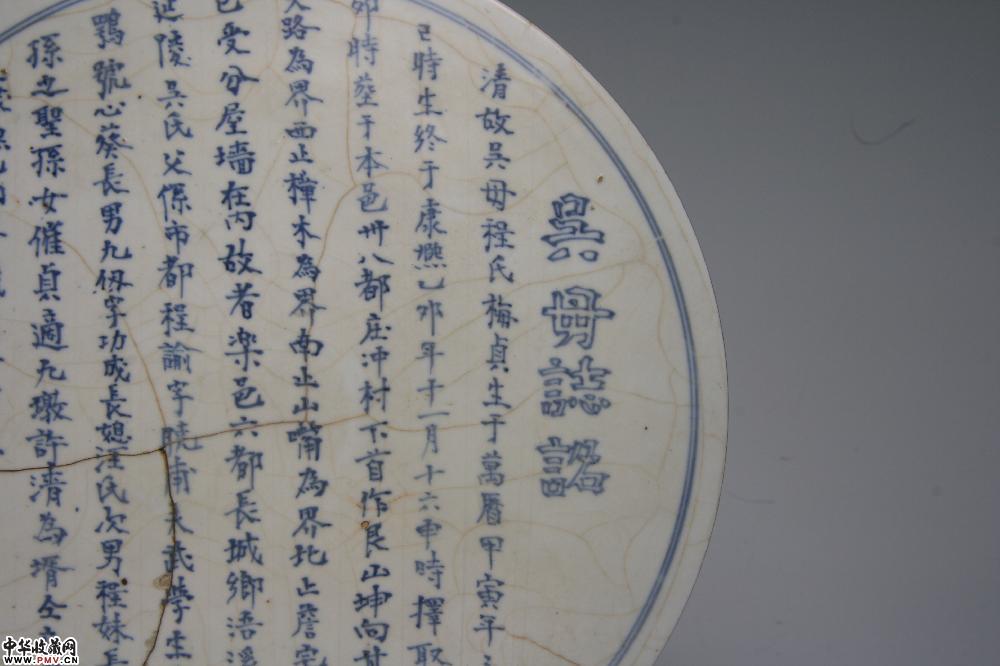 吳母誌銘
清故吳母程氏梅貞生于萬曆甲寅年
巳時生終于康熙乙卯年十一月十六申時擇取
卯時塟于本邑卅八都庄冲村下首作艮山坤向
路為界西止樟木為界南止山嘴為界北止詹宅
已受分屋墻在内故者楽邑六都長城鄉浯溪
延陵吳氏父係市都程諭字曉甫太武學生
鶚號心葵長男九仭字功成長媳汪氏次男程妹長
孫也聖孫女催貞適九墩許清為壻仝
中华收藏网
www.PMV.CN